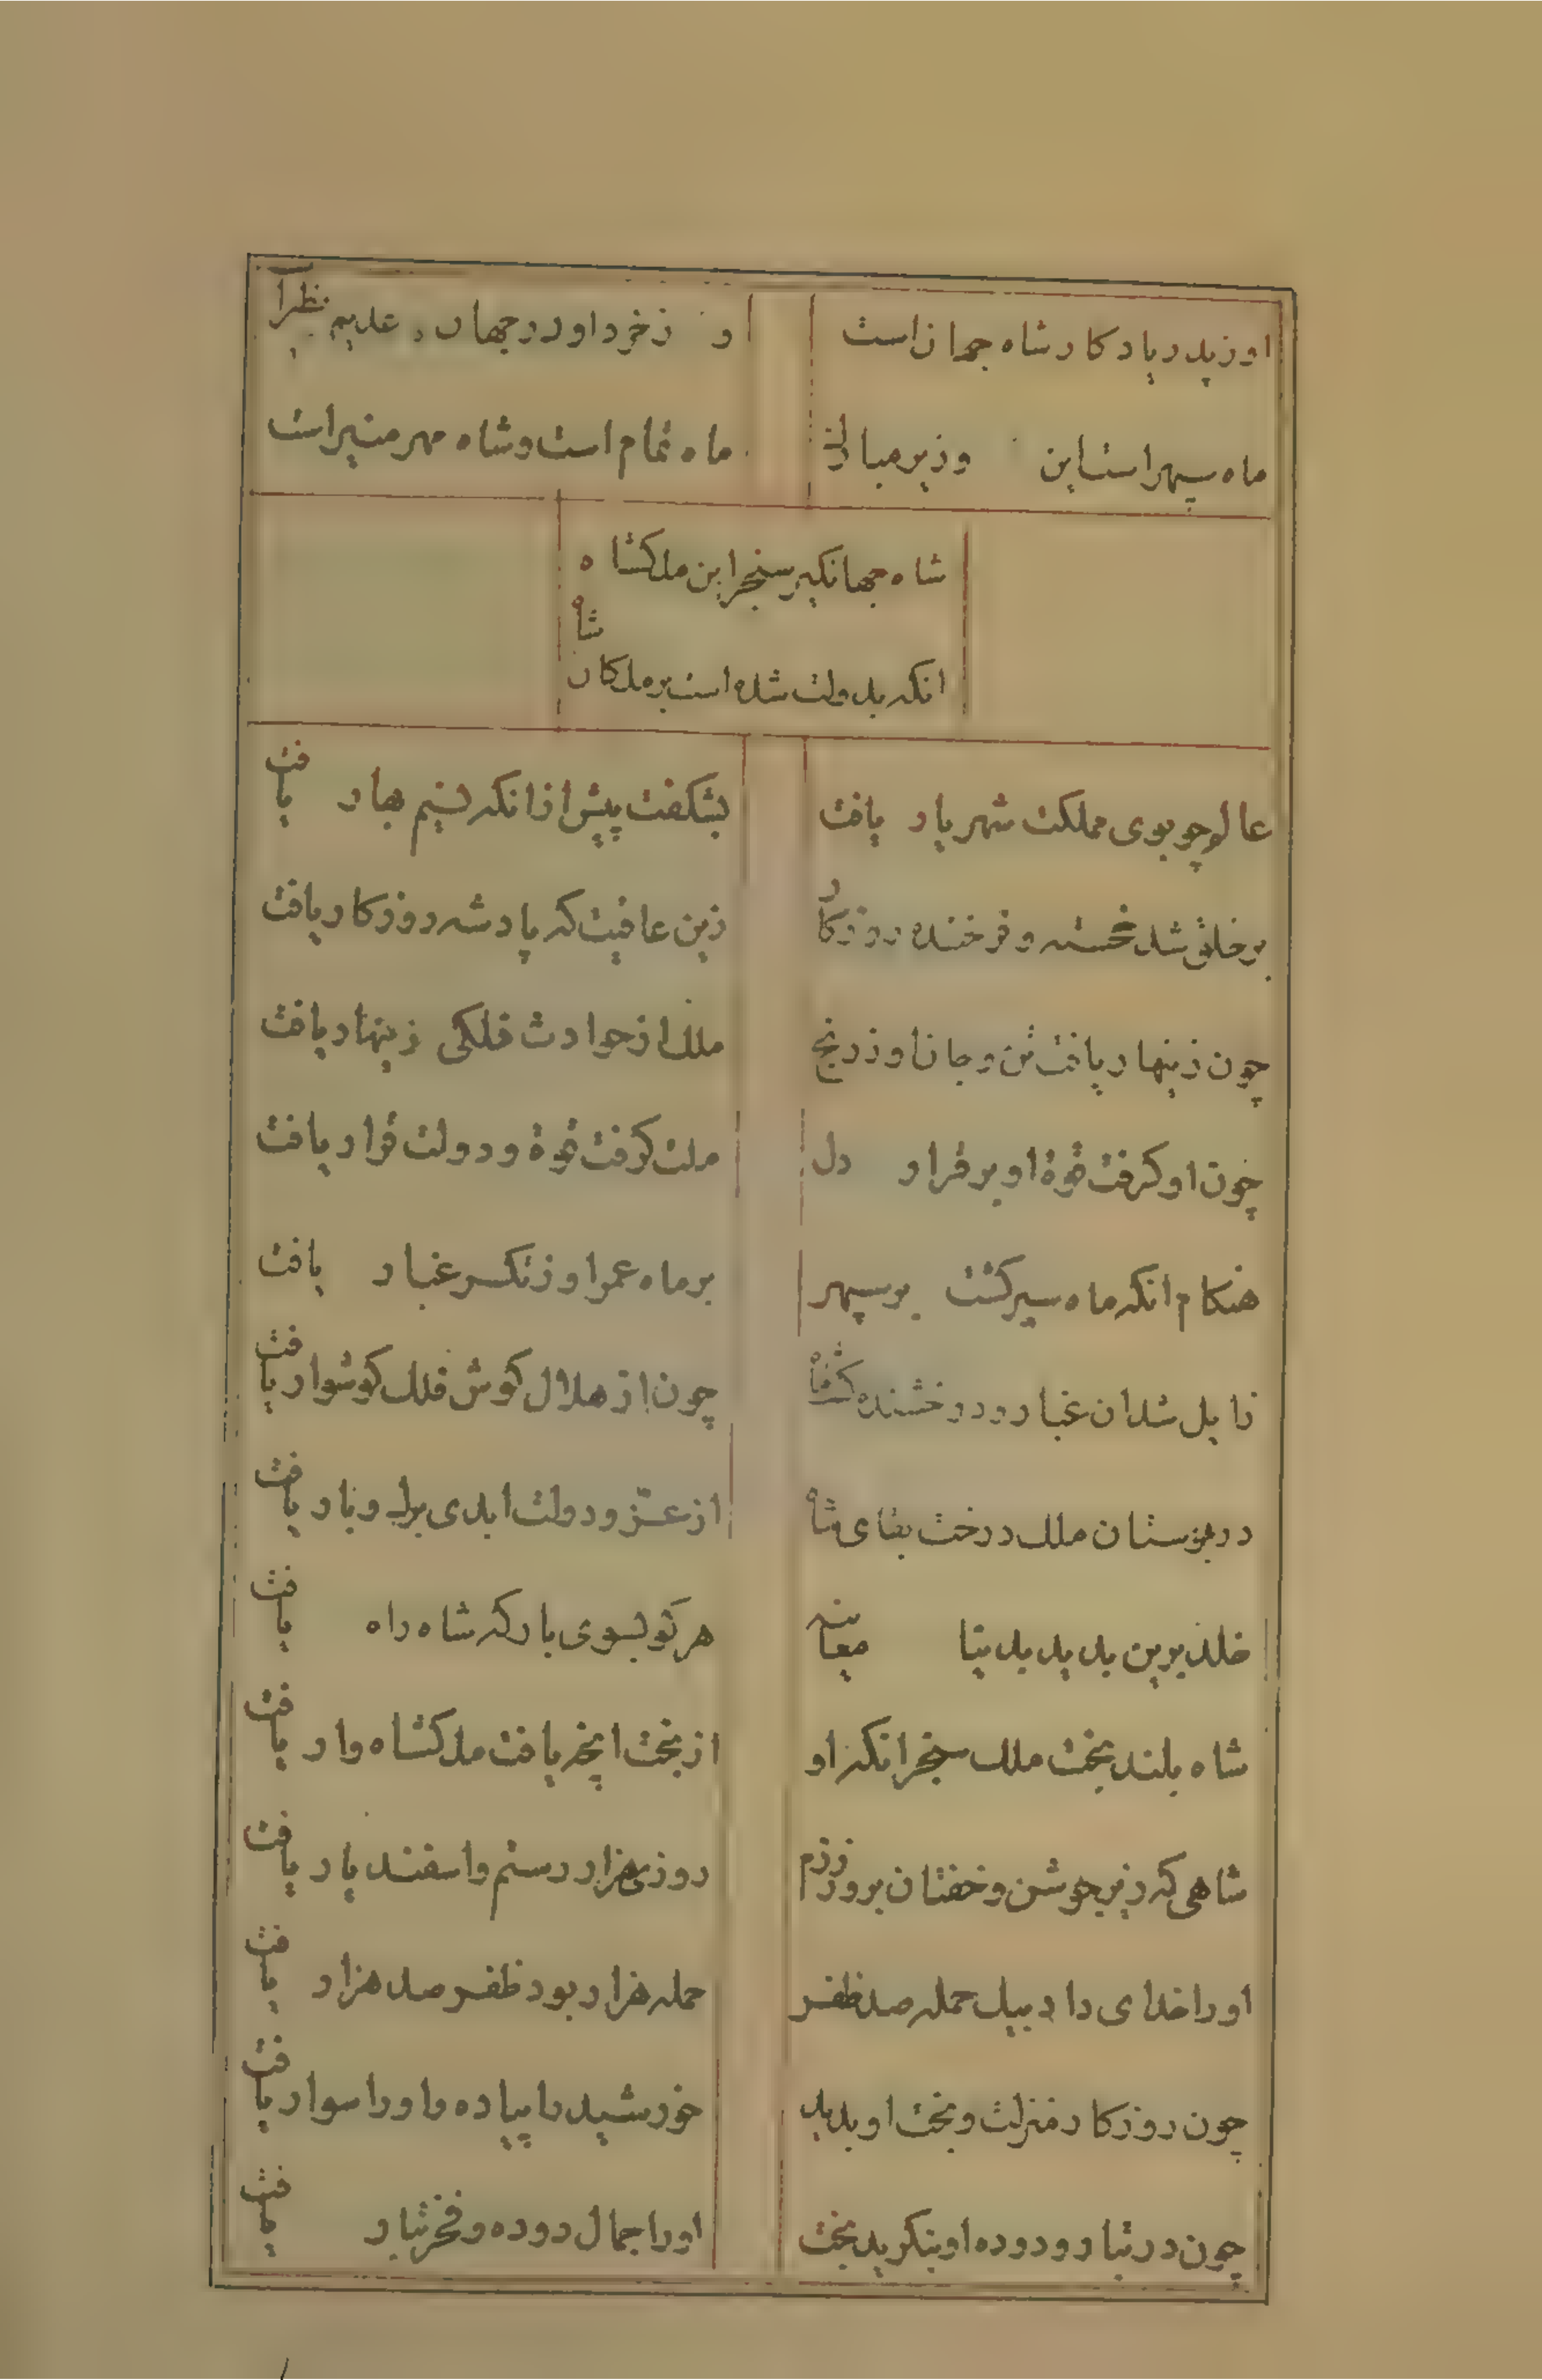 او ز پدر یادکار شاه جهانست
و ز خرد او در جهان عدیم نظیر است
ماه سپهر است این وزیر مبارک
ماه تمام است و شاه مهر منیر است
شاه جهانکیر سنجر ابن ملکشاه
انکه بدولت شده است بر ملکان شاه
عالم چو بوی مملکت شهریار یافت
بشکفت پیش از انکه نسیم بهار یافت
بر خلق شد خجسته و فرخنده روزکار
زین عافیت که پادشه روزکار یافت
چون زینهار یافت تن و جان او ز رنج
ملک از حوادث فلکی زینهار یافت
چون او کرفت قوة او بر قرار دل
ملت کرفت قوة و دولت قرار یافت
هنکام انکه ماه سیر کشت بر سپهر
بر ماه عمر او ز تکسر غبار یافت
زایل شد ان غبار و درخشنده کشت ماه
چون از هلال کوش فلک کوشوار یافت
در بوستان ملک درخت بقای شاه
از عز و دولت ابدی برک و بار یافت
خلد برین بدید بدنیا معاینه
هر کو بسوی بارکه شاه راه یافت
شاه بلند بخت ملک سنجر انکه او
از بخت انچه یافت ملکشاه وار یافت
شاهی که زیر جوشن و خفتان بروز رزم
روزی هزار رستم و اسفندیار یافت
او را خدای داد بیک حمله صد ظفر
حمله هزار بود ظفر صد هزار یافت
چون روزکار منزلت و بخت او بدید
خورشید را پیاده و او را سوار یافت
چون در تبار و دوده او بنکرید بخت
او را جمال دوده و فخر تبار یافت